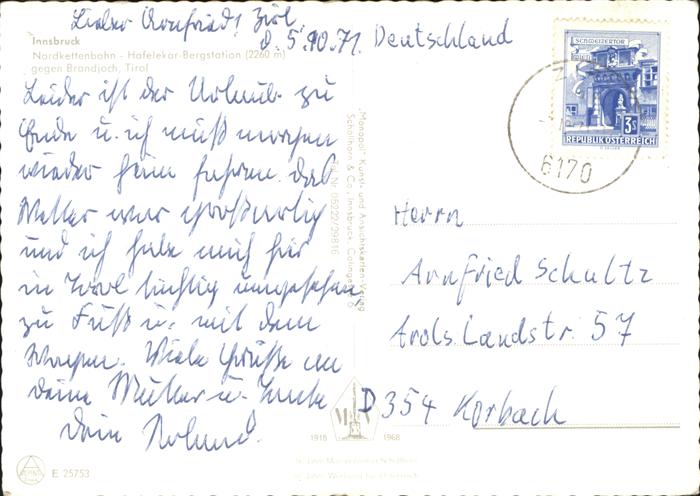 Lieber Arnfried! Zirl
d. 5.10.71.
Innsbruck
Nordkettenbahn - Hafelekar-Bergstation (2260 m)
gegen Brandjoch, Tirol
Leider ist der Urlaub zu
Ende u. ich muß morgen
wieder heim fahren. Das
Wetter war großartig
und ich habe mich hier
in Zirl tüchtig umgesehen
zu Fuß u. mit dem
Wagen. Viele Grüße an
deine Mutter u.
Dein Roland.
E 25753
Monopol Kunst- und Ansichtskarten-Verlag
Schöllhorn & Co., Innsbruck,
1918 1968
Deutschland
SCHWEIZERTOR
3 S
REPUBLIK ÖSTERREICH
6170
Herrn
Arnfried Schultz
Arols. Landstr. 57
D 354 Korbach